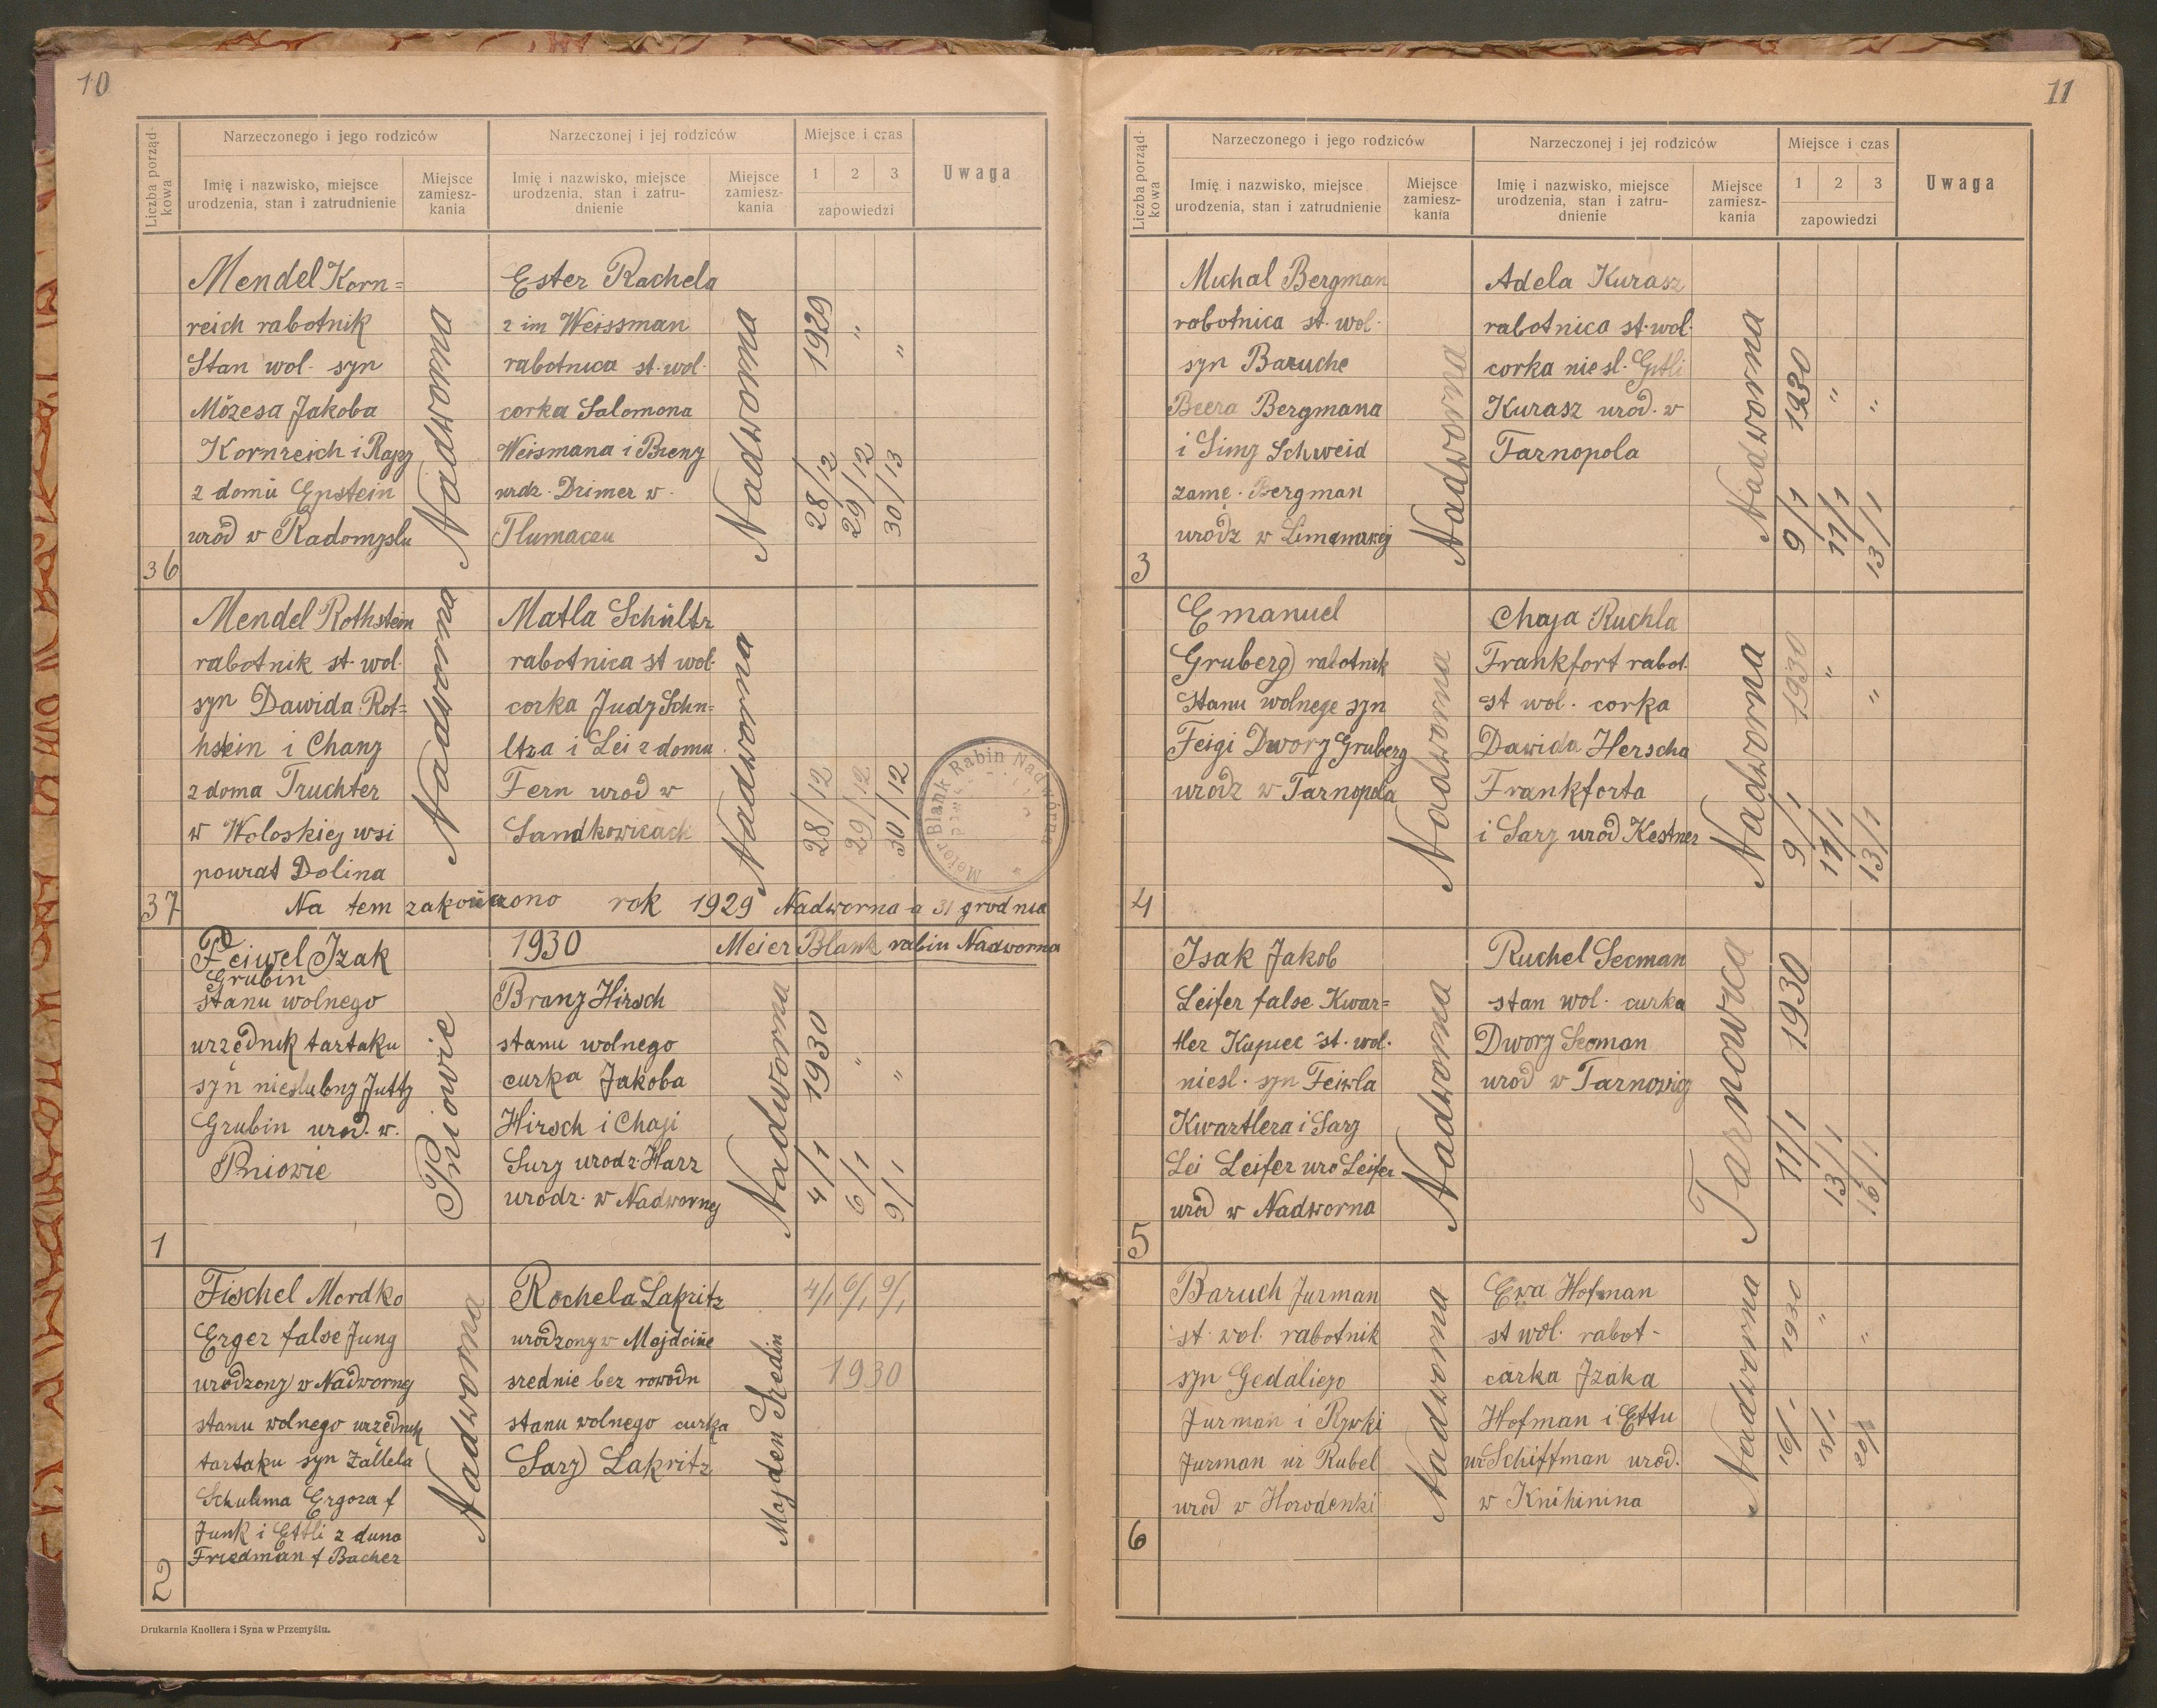 10
Liczba porządkowa
Narzeczonego i jego rodziców
Narzeczonej i jej rodziców
Miejsce i czas
Uwaga
Imię i nazwisko, miejsce
urodzenia, stan i zatrudnienie
Miejsce
zamiesz-
kania
Imię i nazwisko, miejsce
urodzenia, stan i zatru-
dnienie
Miejsce
zamiesz-
kania
1 2 3
zapowiedzi
36
Mendel Korn=
reich rabotnik
Stan wol. syn
Mózesa Jakoba
Kornreich i Rajzy
z domu Epstein
urod w Radomyslu
Nadworna
Ester Rachela
2 im Weissman
rabotnica st. wol.
corka Salomona
Weismana i Breny
urdz. Drimer w.
Tlumaczu
Nadworna
28/12 1929
29/12 "
30/13 "
37
Mendel Rothstein
rabotnik st. wol.
syn Dawida Rot=
hstein i Chany
z doma Truchter
w Woloskiej wsi
powrat Dolina
Nadworna
Matla Schultz
rabotnica st wol.
corka Judy Schu=
ltza i Lei z domu
Fern urod w
Sandkowicach
Nadworna
28/12
29/12
30/12
Meier Blank Rabin Nadwórna
Na tem zakończono rok 1929 Nadworna a 31 grodnia
1930 Meier Blank rabin Nadworna
1
Feiwel Izak
Grubin
stanu wolnego
urzędnik tartaku
syn nieslubny Jutty
Grubin urod. w.
Pniowie
Pniowie
Brany Hirsch
stanu wolnego
curka Jakoba
Hirsch i Chaji
Sury urodz. Harz
urodz. w Nadwornej
Nadworna
4/1 1930
6/1 "
9/1 "
2
Fischel Mordko
Erger false Jung
urodzony w Nadwornej
stanu wolnego urzędnik
tartaku syn Zallela
Schulima Ergera f
Junk i Ettli z duno
Friedman f Bacher
Nadworna
Rochela Lakritz
urodzony w Majdcine
srednie bez rowodn
stanu wolnego curka
Sary Lakritz
Majden Sredin
4/1 6/1 9/1
1930
Drukarnia Knollera i Syna w Przemyślu.
11
Liczba porządkowa
Narzeczonego i jego rodziców
Narzeczonej i jej rodziców
Miejsce i czas
Uwaga
Imię i nazwisko, miejsce
urodzenia, stan i zatrudnienie
Miejsce
zamiesz-
kania
Imię i nazwisko, miejsce
urodzenia, stan i zatru-
dnienie
Miejsce
zamiesz-
kania
1 2 3
zapowiedzi
3
Michal Bergman
robotnica st. wol.
syn Baruche
Beera Bergmana
i Simy Schweid
zamę. Bergman
urodz w Limanowej
Nadworna
Adela Kurasz
rabotnica st. wol.
corka niesl. Gitli
Kurasz urod. w
Tarnopola
Nadworna
9/1 1930
11/1 "
13/1 "
4
Emanuel
Gruberg rabotnik
Stanu wolnego syn
Feigi Dwory Gruberg
urodz w Tarnopola
Nadworna
Chaja Ruchla
Frankfort rabot.
st wol. corka
Dawida Herscha
Frankforta
i Sary urod Kestner
Nadworna
9/1 1930
11/1 "
13/1 "
5
Isak Jakob
Leifer false Kwar=
tler Kupiec st. wol.
niesl. syn Feiwla
Kwartlera i Sary
Lei Leifer uro Leifer
urod w Nadworna
Nadworna
Ruchel Seeman
stan wol. curka
Dwory Seeman
urod w Tarnowicy
Tarnowica
11/1 1930
13/1
16/1
6
Baruch Jurman
st. wol. rabotnik
syn Gedaliego
Jurman i Rywki
Jurman ur Rubel
urod w Horodenki
Nadworna
Ewa Hofman
st wol. rabot-
carka Izaka
Hofman i Ettu
ur Schiffman urod.
w Knihinina
Nadworna
16/1 1930
18/1 "
20/1 "